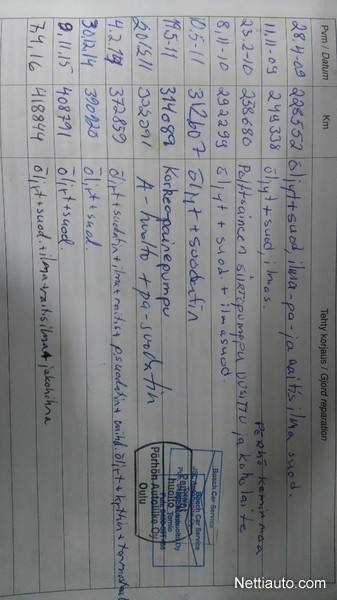 Pvm / Datum Km Tehty korjaus / Gjord reparation
28.4-09 225552 öljyt+suod ilma-pa-ja raitis ilma suod.
11.11-09 249338 öljyt+suod, ilmas.
23.2-10 258680 Polttoaineen siirtopumppu uusittu ja kohulaite
8.11-10 292299 öljyt + suod + ilmasuod.
10.5-11 312607 öljyt + suodatin
19.5-11 314089 Korkeapainepumppu
20.5.11 322091 A-huolto + pa-suodatin
4.2.14 372859 öljyt+suodatin+ilma+raitis+ p.suodatin+
30.12.14 390920 öljyt+suod.
9.11.15 408791 öljyt+suod.
7.4.16 418844 öljyt+suod.+ilma+raitisilma+jakohihna
Bosch Car Service
Bosch Car Service
huolto
Pörhön Autoliike Oy
Oulu
Nettiauto.com